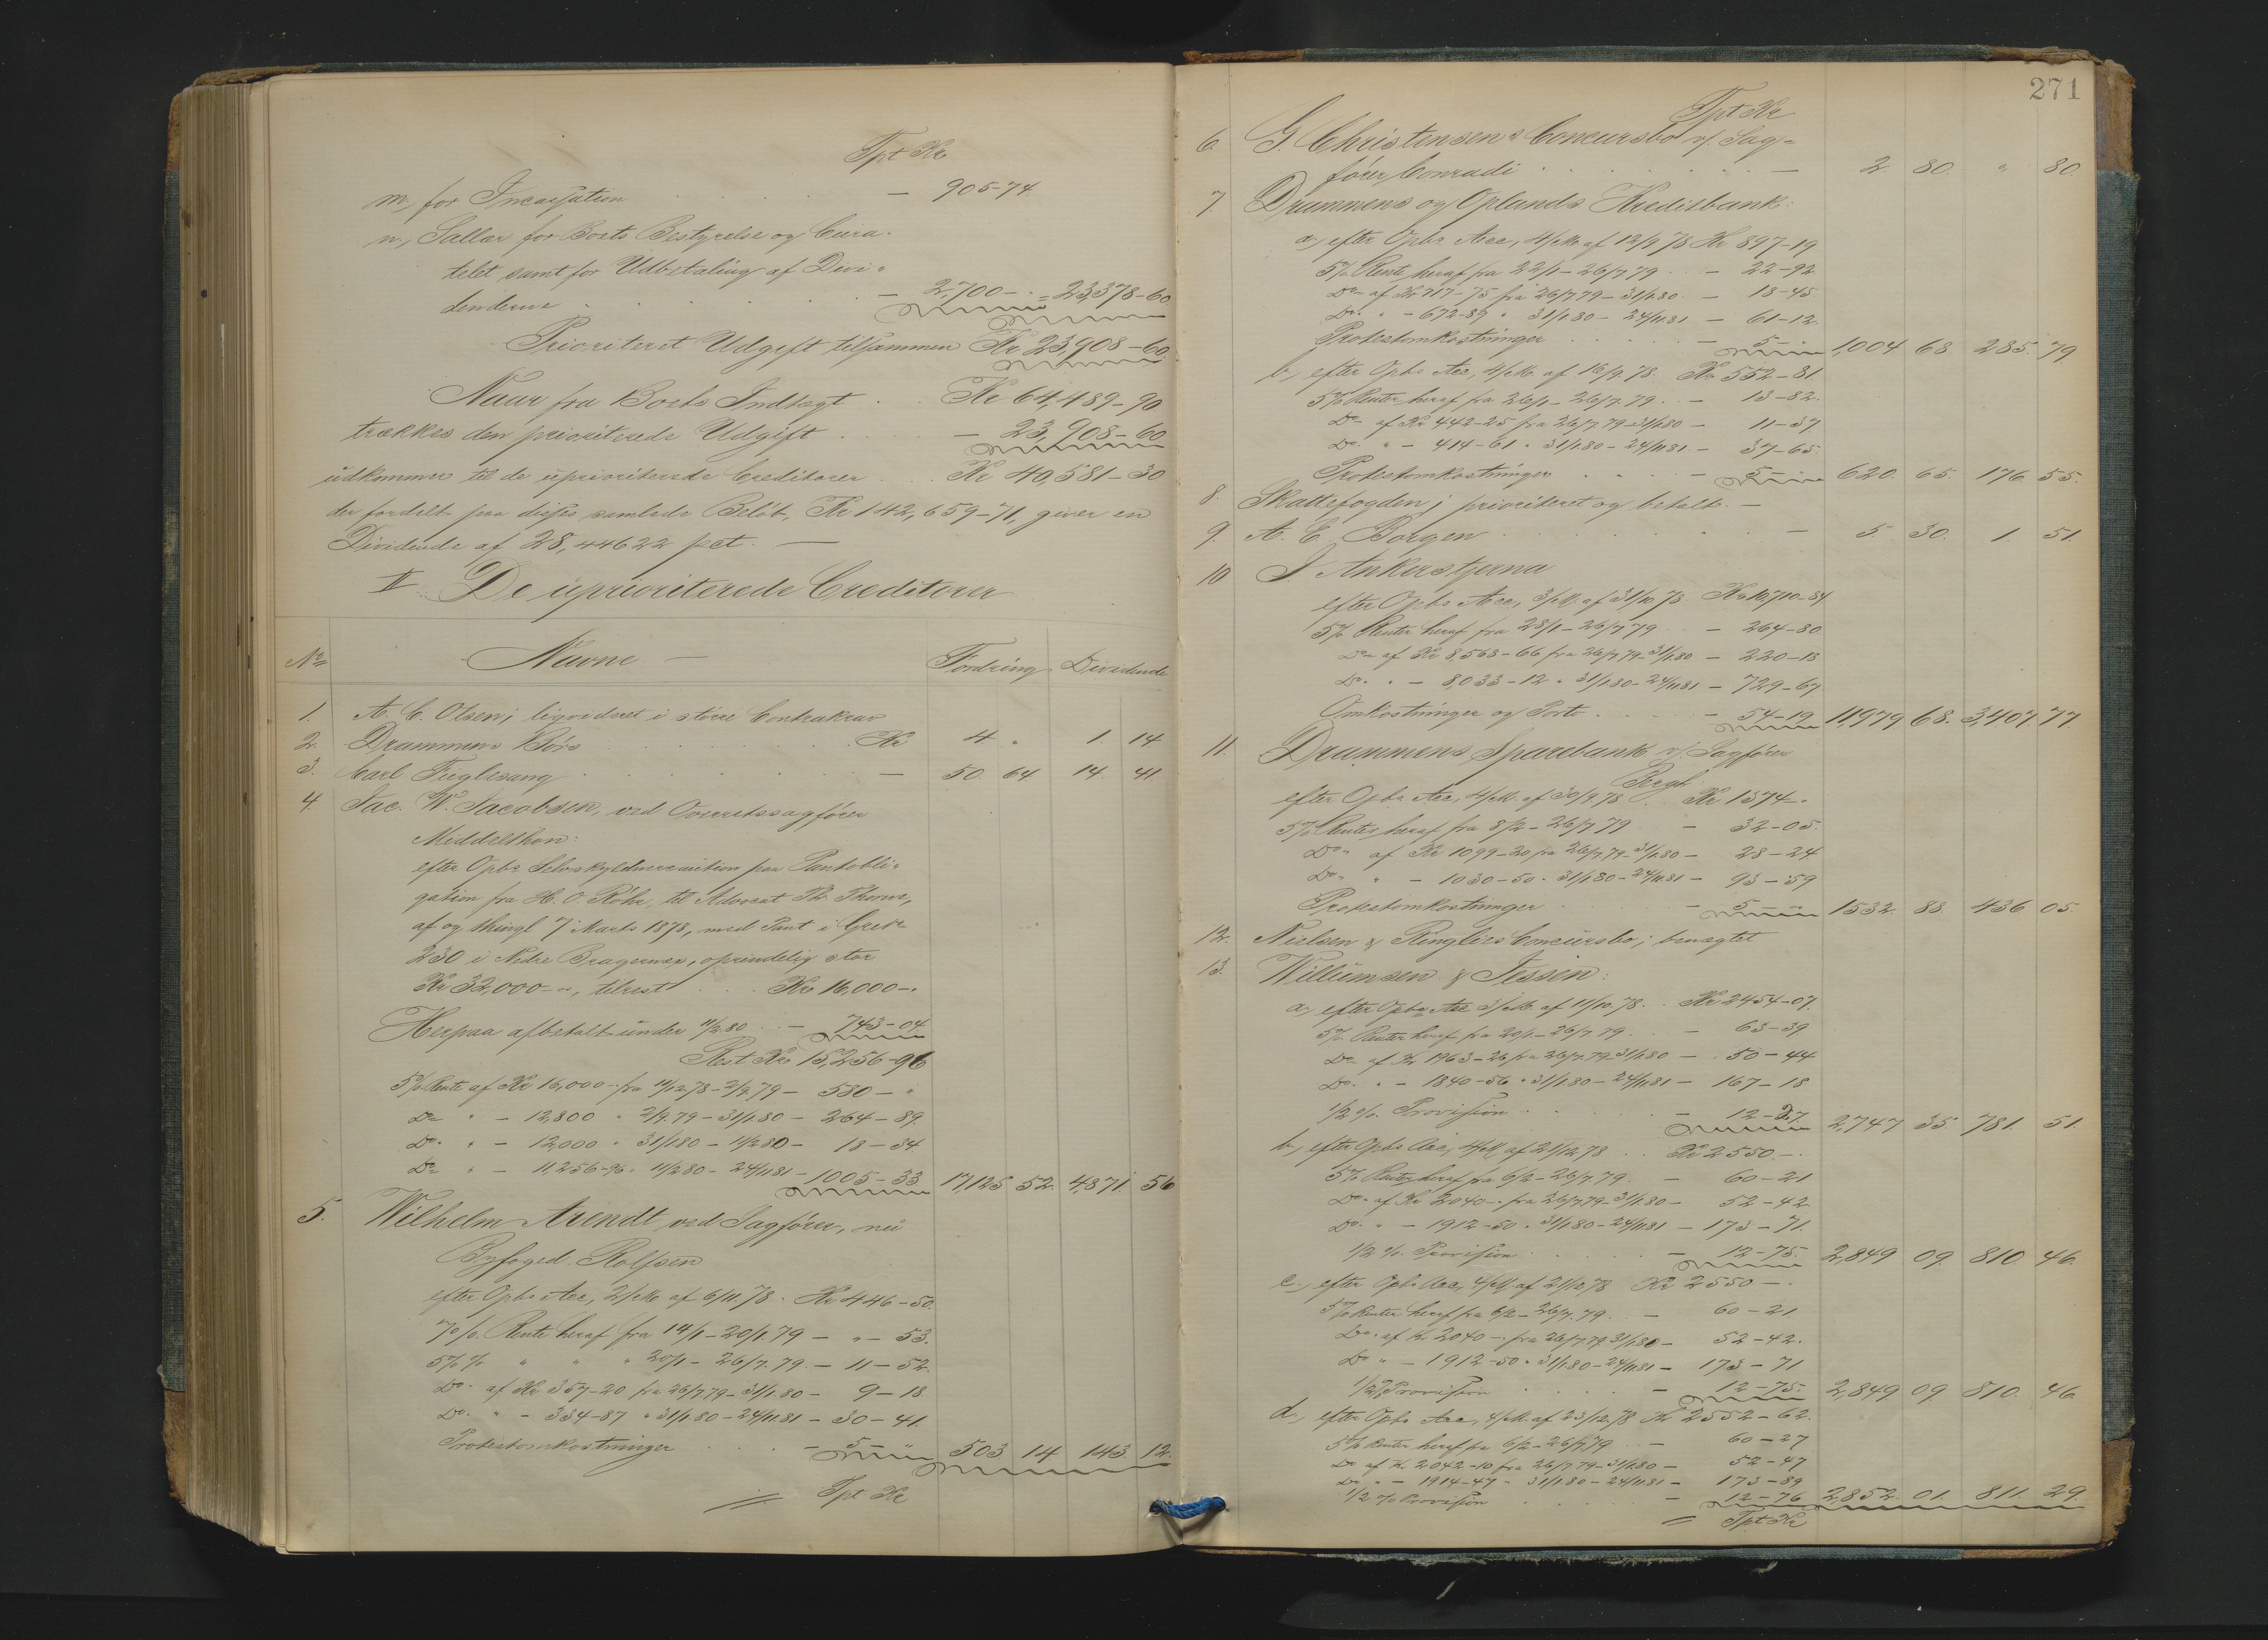 Tpt Kr
m, for Incassation — 905-74.
n, Sallær for Boets Bestyrelse og Cura-
telet samt for Udbetaling af Divi-
denderne — 2,700-.= 23,378-60
Prioriteret Udgift tilsammen Kr 23,908-60.
Naar fra Boets Indtægt Kr 64,489-90
trækkes den prioriterede Udgift — 23,908-60
udkommer til de uprioriterede Creditorer Kr 40,581-30
der fordelt paa disses samlede Beløb, Kr 142,659-71, giver en
Dividende af 28,44622 pct. —
IV. De uprioriterede Creditorer
No Navne. — Fordring Dividende
1. A. C. Olsen; liqvideret i større Contrakrav
2. Drammens Börs Kr 4 " 1. 14
3. Carl Fuglesang — 50. 64 14. 41.
4. Jac. W. Jacobsen, ved Overretssagfører
Middelthon:
efter Opbr Selvskyldnercaution paa Pantobli-
gation fra H. O. Röhr, til Advocat Th. Thorne,
af og thingl 7 Marts 1878, med Pant i Grev
230 i Nedre Bragernæs, oprindelig stor
Kr 32,000-", tilrest Kr 16,000-.
Herpaa afbetalt under 11/2.80 — 743-04
Rest Kr 15,256-96
5% Rente af Kr 16,000-. fra 11/12.78-2/9.79 — 580-"
Do " — 12,800 " 2/9.79-31/1.80 — 264-89.
Do. " — 12,000 " 31/1.80-11/2.80 — 18-34
Do " — 11,256-96. 11/2.80-24/11.81 — 1005-33 17,125 52. 4,871. 56
5. Wilhelm Arendt ved Sagfører, nu
Byfoged Rolfsen
efter Opbr Acc, 2/eM af 6/11.78. Kr 446-50.
7% Rente heraf fra 14/1-20/1.79 — "-53.
5% " " " 20/1-26/7.79. — 11-52.
Do. af Kr 357-20 fra 26/7.79-31/1.80 — 9-18
Do. " — 334-87 " 31/1.80-24/11.81 — 30-41.
Protestomkostninger — 5-" 503 14 143. 12.
Tpt Kr
271
Tpt Kr
6. G. Christensens Concursbo v/ Sag-
fører Conradi — 2 80. " 80
7. Drammens og Oplands Kreditbank:
a, efter Opbr Acc, 4/eM af 12/9 78 Kr 897-19
5% Rente heraf fra 22/1-26/7 79 — 22-92
Do af Kr 717-75 fra 26/7 79-31/1.80. — 18-45
Do. " — 672-89 " 31/1.80-24/11.81 — 61-12
Protestomkostninger — 5-" 1,004 68 285. 79.
b, efter Opbr Acc, 4/eM af 16/9.78. Kr 552-81.
5% Renter heraf fra 26/1-26/7.79. — 13-82.
Do af Kr 442-25 fra 26/7 79-31/1.80 — 11-37
Do. " — 414-61 " 31/1.80-24/11.81 — 37-65.
Protestomkostninger — 5-" 620. 65. 176. 55.
8. Skattefogden; prioriteret og betalt. —
9. A. E. Borgen — 5. 30. 1 51.
10 J. Ankerstjerna
efter Opbr Acc, 3/eM. af 31/10.78. Kr 10,710-84
5% Renter heraf fra 28/1-26/7 79 — 264-80
Do af Kr 8,568-66 fra 26/7 79-31/1.80 — 220-18
Do. " — 8033-12 " 31/1.80-24/11.81 — 729-67
Omkostninger og Porto — 54-19 11,979 68. 3,407. 77.
11. Drammens Sparebank v/ Sagfører
Bergh
efter Opbr Acc, 4/eM. af 30/9.78 Kr 1374-.
5% Renter heraf fra 8/2-26/7 79 — 32-05.
Do. af Kr 1099-20 fra 26/7.79-31/1.80 — 28-24.
Do. " — 1030-50. 31/1.80-24/11.81 — 93-59
Protestomkostninger — 5-" 1532. 88. 436 05.
12. Nielsen & Ringlies Concursbo; benægtet
13. Willumsen & Jessen:
a, efter Opbr Acc 3/eM. af 11/10.78. Kr 2454-07.
5% Renter heraf fra 20/1-26/7 79. — 63-39
Do af Kr 1963-26 fra 26/7.79-31/1.80 — 50-44
Do. " — 1840-56 " 31/1.80-24/11.81 — 167-18
1/2 %. Provision — 12-27. 2,747 35. 781. 51.
b, efter Opbr Acc, 4/eM af 21/12.78 Kr 2550-.
5% Renter heraf fra 6/2-26/7.79. — 60-21
Do. af Kr 2040-. fra 26/7.79-31/1.80 — 52-42
Do. " — 1912-50. 31/1.80-24/11.81 — 173-71.
1/2 %. Provision — 12-75. 2,849 09. 810 46.
c, efter Opbr Acc, 4/eM af 21/12/78 Kr 2550-.
5% Renter heraf fra 6/2-26/7.79. — 60-21
Do. af Kr 2040-. fra 26/7.79 31/1.80 — 52-42.
Do " — 1912-50 " 31/1.80-24/11.81 — 173-71
1/2% Provision — 12-75. 2,849 09 810. 46
d, efter Opbr Acc, 4/eM. af 23/12.78 Kr 2552-62.
5% Renter heraf fra 6/2-26/7.79 — 60-27
Do af Kr 2042-10 fra 26/7.79-31/1.80 — 52-47
Do. " — 1914-47 " 31/1.80-24/11.81 — 173-89
1/2 % Provision — 12-76 2,852. 01. 811. 29.
Tpt Kr